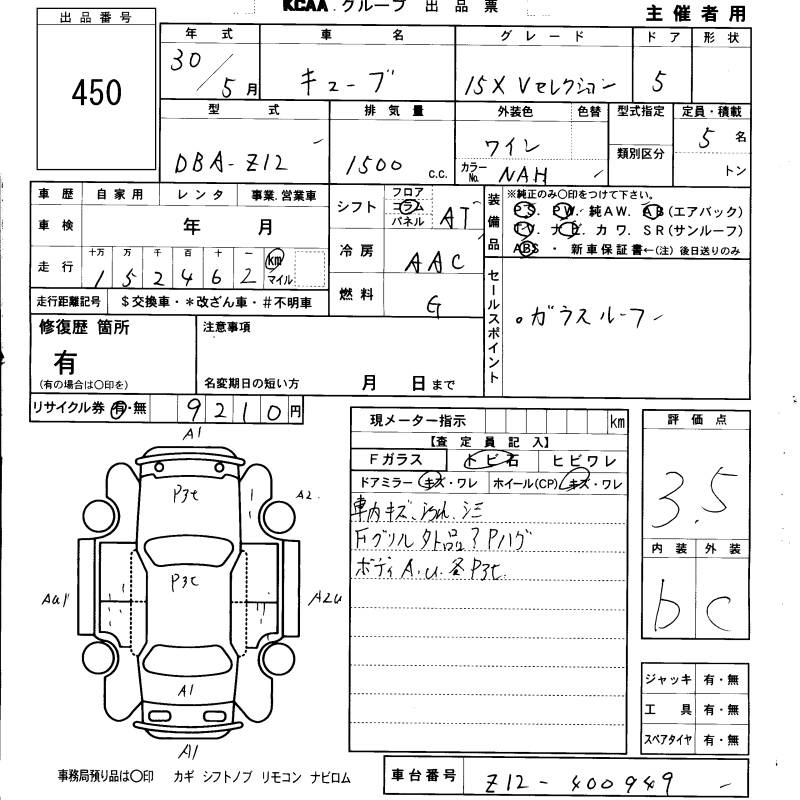 KCAA グループ 出品票
主催者用
出品番号
450
年式 車名 グレード ドア 形状
30/5月 キューブ 15X Vセレクション 5
型式 排気量 外装色 色替 型式指定 定員・積載
DBA-Z12 1500 C.C. ワイン 類別区分 5名
カラーNo. NAH トン
車歴 自家用 レンタ 事業.営業車
車検 年 月
走行 十万 万 千 百 十 一 km マイル
1 5 2 4 6 2
走行距離記号 $交換車・*改ざん車・#不明車
シフト フロア コラム パネル AT
冷房 AAC
燃料 G
装備品
※純正のみ〇印をつけて下さい。
PS. PW. 純AW. AB(エアバック)
TV. ナビ. カワ. SR(サンルーフ)
ABS ・ 新車保証書←(注)後日送りのみ
セールスポイント
。ガラスルーフ
修復歴 箇所
有
(有の場合は〇印を)
注意事項
名変期日の短い方 月 日まで
リサイクル券 有・無 9210円
現メーター指示 km
【査定員記入】
Fガラス トビ石 ヒビワレ
ドアミラー キズ・ワレ ホイール(CP) キズ・ワレ
車内キズ、ヨゴレ、シミ
Fグリル外品?Pハゲ
ボディA.U.各P3t.
評価点
3.5
内装 外装
b C
A1
P3t
A2
P3t
AU1
A2U
A1
A1
ジャッキ 有・無
工具 有・無
スペアタイヤ 有・無
事務局預り品は〇印 カギ シフトノブ リモコン ナビロム
車台番号 Z12-400949